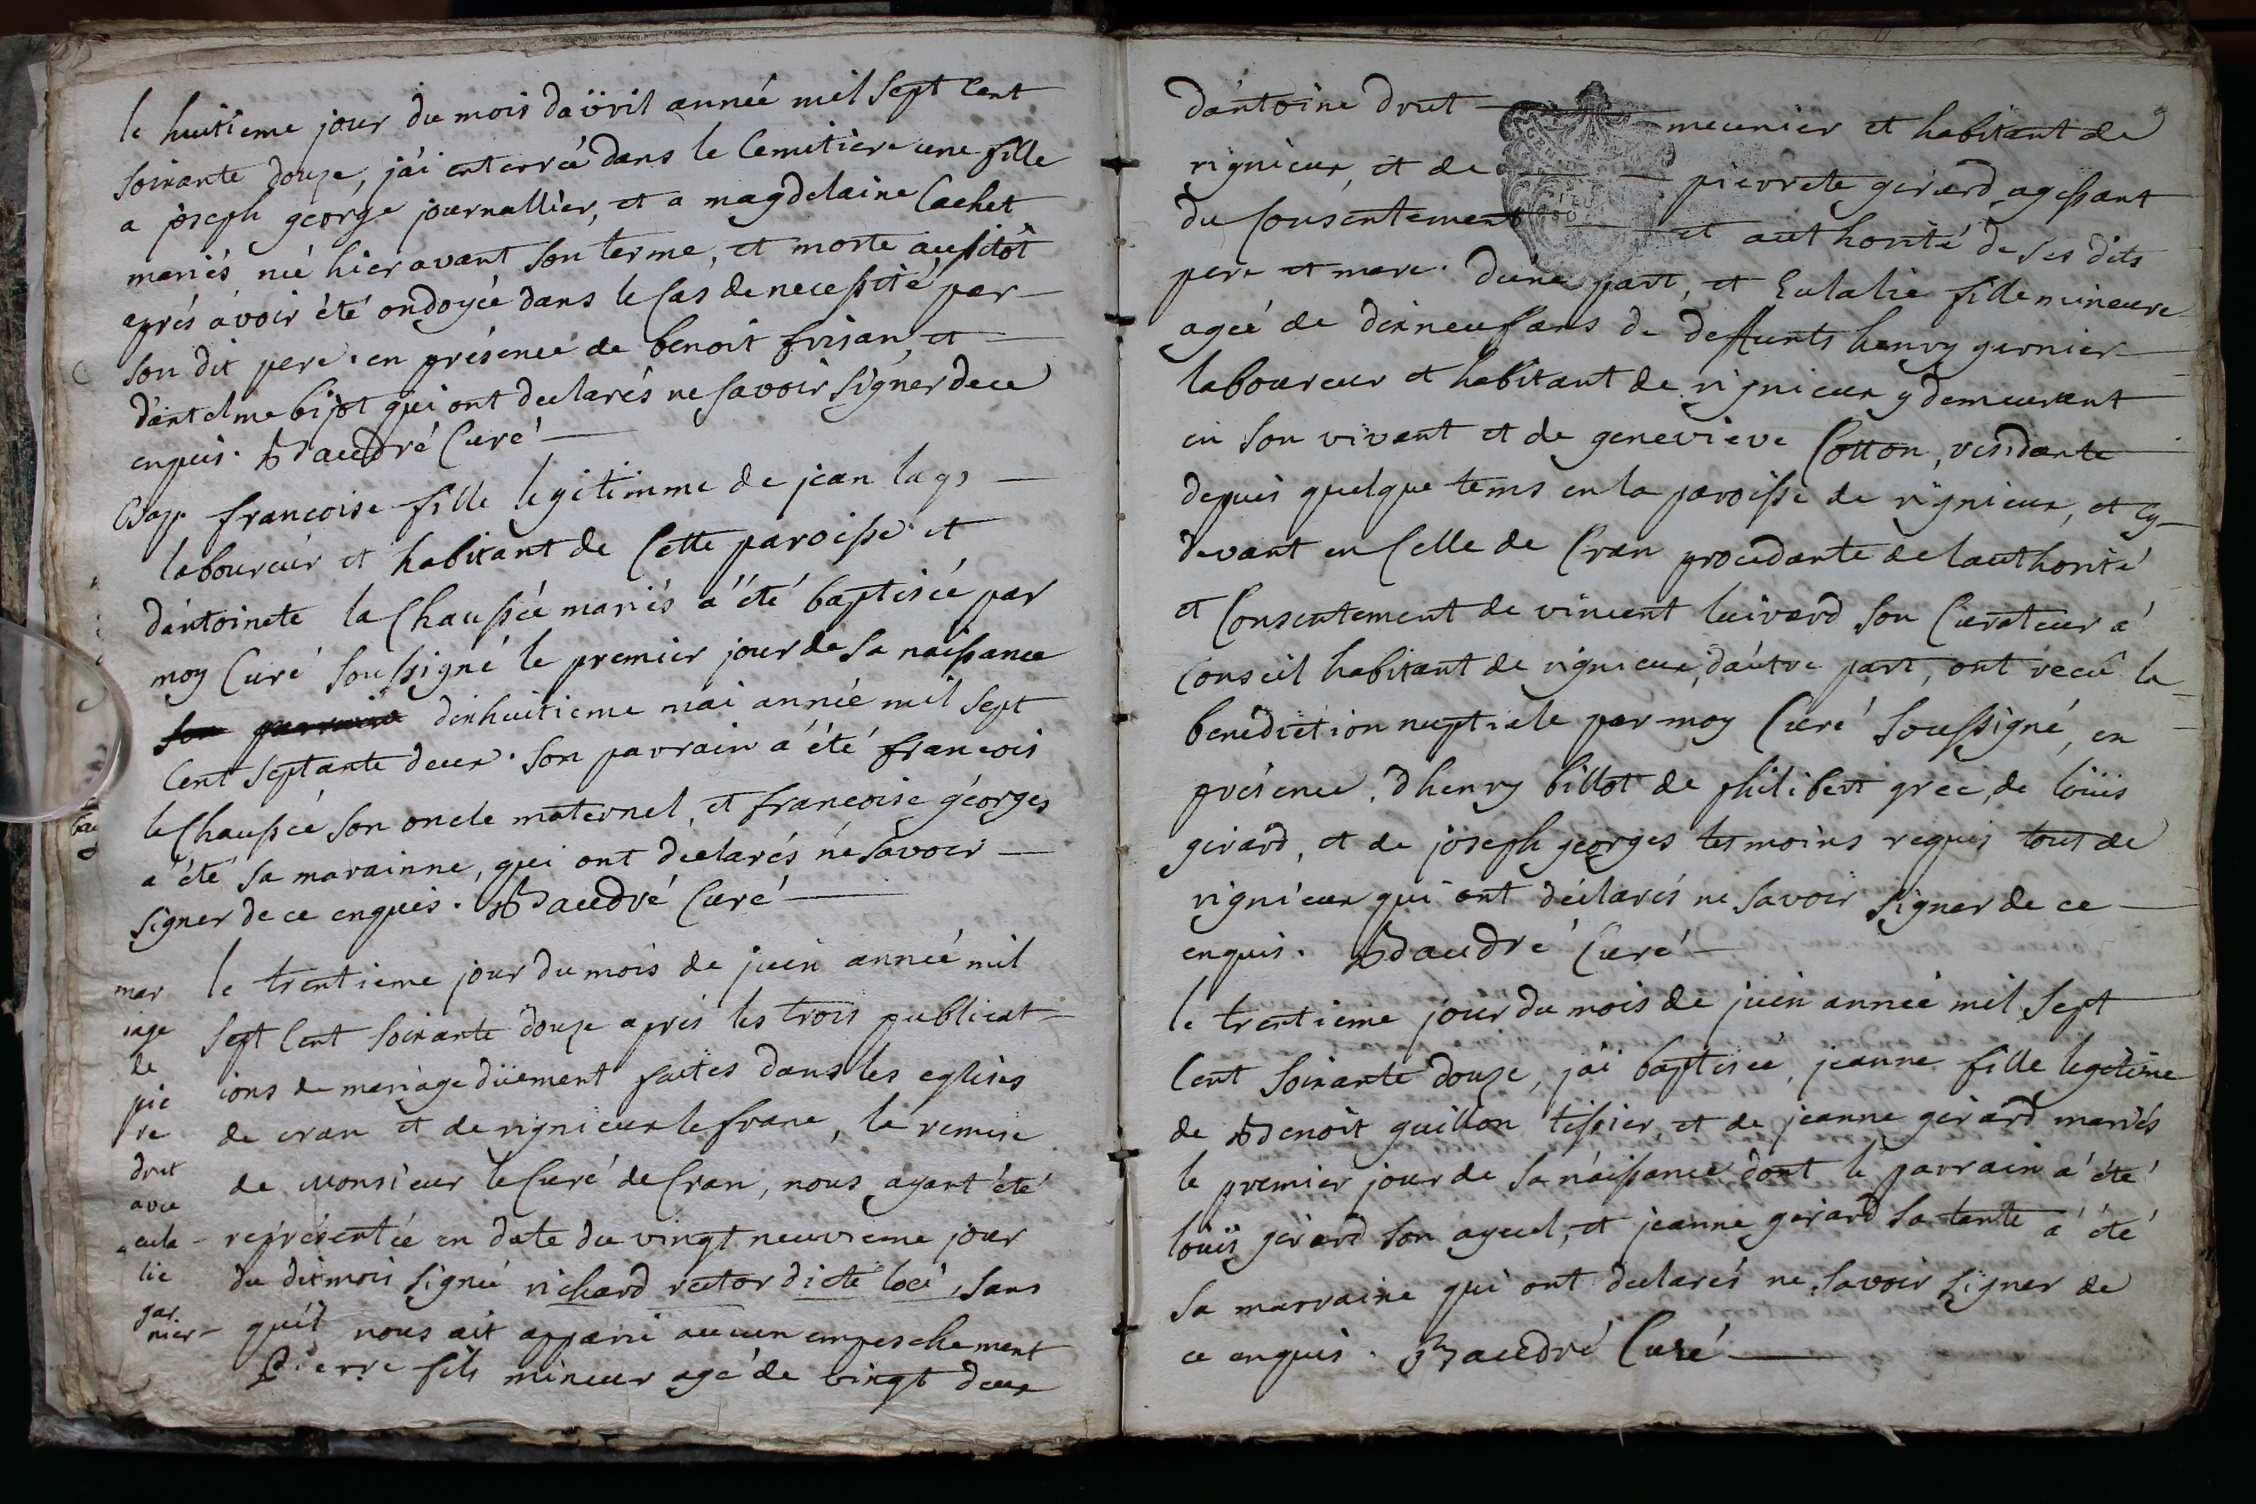 le huitieme jour du mois d'avril année mil sept cent
soixante douze, j'ai enterrée dans le cemitiere une fille
a joseph george journallier, et a magdelaine Cachet
mariés née hier avant son terme, et morte aussitôt
après avoir été ondoyée dans le cas de necessité par
son dit pere. en présence de benoit frisan, et
d'antelme bijot qui ont declarés ne savoir signer de ce
enquis. Baudré Curé
Bap. francoise fille legitimme de jean lays
laboureur et habitant de cette paroisse et
d'antoinete la Chaussée mariés a été baptisée par
moy Curé soussigné le premier jour de sa naissance
son parrain dixhuitieme mai année mil sept
cent septante deux. son parrain a été francois
la Chaussée son oncle maternel, et francoise géorges
a été sa marainne, qui ont déclarés ne savoir
signer de ce enquis. Baudré Curé
mar le trentieme jour du mois de juin année mil
iage sept cent soixante douze apres les trois publicat-
de
pie ions de mariage düement faites dans les eglises
re de cran et de rignieux le franc, la remise
drut de Monsieur le Curé de Cran, nous ayant été
avec
eula- représentée en date du vingt neuvieme jour
lie du dit mois signée richard rector dicte loci, sans
gar
nier- qu'il nous ait apparu aucun empeschement
Pierre fils mineur agé de vingt deux
d'antoine drut meunier et habitant de
rignieux, et de pierrete gerard agissant
du consentement et authorité de ses dits
pere et mere. d'une part, et Eulalie fille mineure
agée de dixneuf ans de deffunts henry gernier
laboureur et habitant de rignieux y demeurant
en son vivant et de genevieve Cotton, residante
depuis quelque tems en la paroisse de rignieux, et cy-
devant en celle de Cran procedante de l'authorité
et consentement de vincent luivard son Curateur a
conseil habitant de rignieux, d'autre part, ont recû la
benédiction nuptiale par moy Curé soussigné, en
présence. d'henry billot de philibert grec, de loüis
girard, et de joseph georges tesmoins requis tous de
rignieux qui ont déclarés ne savoir signer de ce
enquis. Baudré Curé
le trentieme jour du mois de juin année mil sept
cent soixante douze, j'ai baptisée, jeanne fille legitime
de Benoit guillon tissier, et de jeanne gerard mariés
le premier jour de sa naissance dont le parrain a été
loüis gerard son ayeul, et jeanne gerard sa tante a été
sa marraine qui ont declarés ne savoir signer de
ce enquis. Baudré Curé